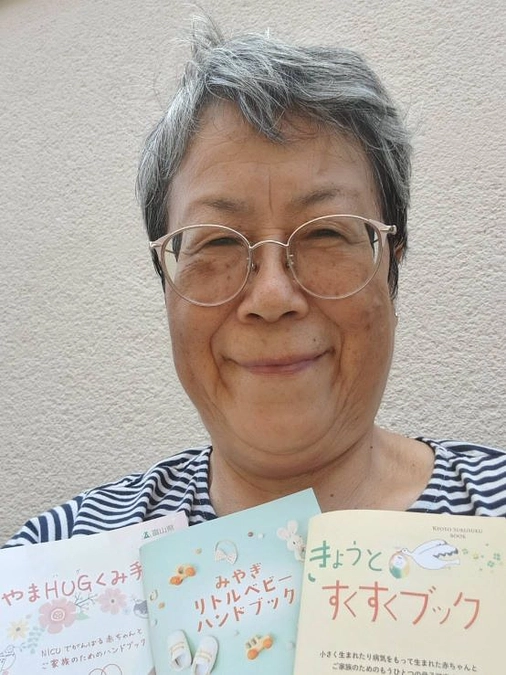 富山県
やまHUGくみ手
NICUでがんばる赤ちゃんと
ご家族のためのハンドブック
みやぎ
リトルベビー
ハンドブック
KYOTO SUKUSUKU
BOOK
きょうと
すくすくブック
小さく生まれたり病気をもって生まれた赤ちゃんと
ご家族のためのもうひとつの母子